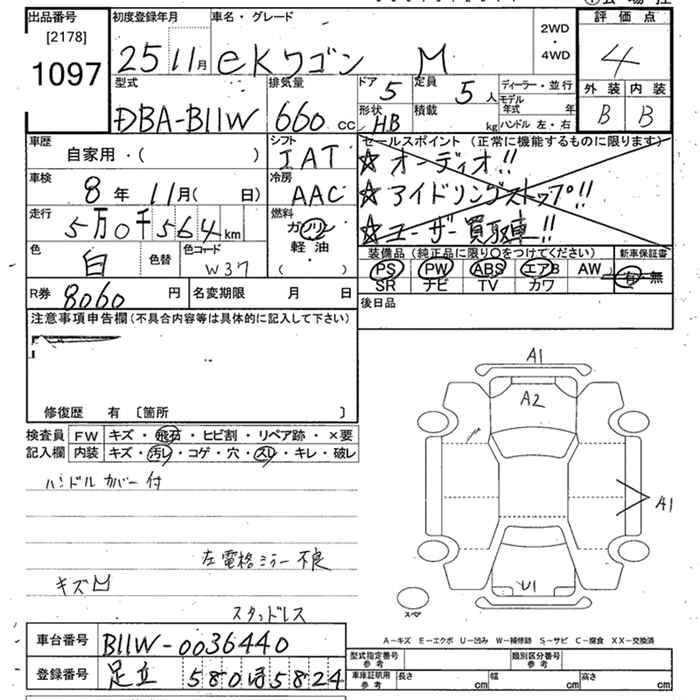 出品番号
[2178]
1097
初度登録年月
25 11月
車名・グレード
eKワゴン M
2WD
・
4WD
評価点
4
外装 内装
B B
型式
DBA-B11W
排気量
660 cc
ドア 5
定員 5 人
形状 HB
積載 kg
ディーラー・並行
モデル年式 年
ハンドル 左・右
車歴
自家用・( )
シフト
IAT
車検
8年 11月( 日)
冷房
AAC
走行
5万0千564km
燃料
ガソリン
軽油
( )
色
白
色替
色コード
W37
セールスポイント (正常に機能するものに限ります)
☆オーディオ!!
☆アイドリングストップ!!
☆ユーザー買取車!!
装備品 (純正品に限り○をつけてください)
PS PW ABS エアB AW
SR ナビ TV カワ
新車保証書
有・無
R券 8060 円
名変期限 月 日
後日品
注意事項申告欄(不具合内容等は具体的に記入して下さい)
修復歴 有 〔箇所 〕
検査員 FW キズ・飛石・ヒビ割・リペア跡・×要
記入欄 内装 キズ・汚レ・コゲ・穴・スレ・キレ・破レ
ハンドルカバー付
左電格ミラー不良
キズM
スタッドレス
A1
A2
A1
U1
スペア
A-キズ E-エクボ U-凹み W-補修跡 S-サビ C-腐食 XX-交換済
車台番号 B11W-0036440
登録番号 足立 580 5824
型式指定番号
参考
類別区分番号
参考
車庫証明用
参考
長さ cm 幅 cm 高さ cm